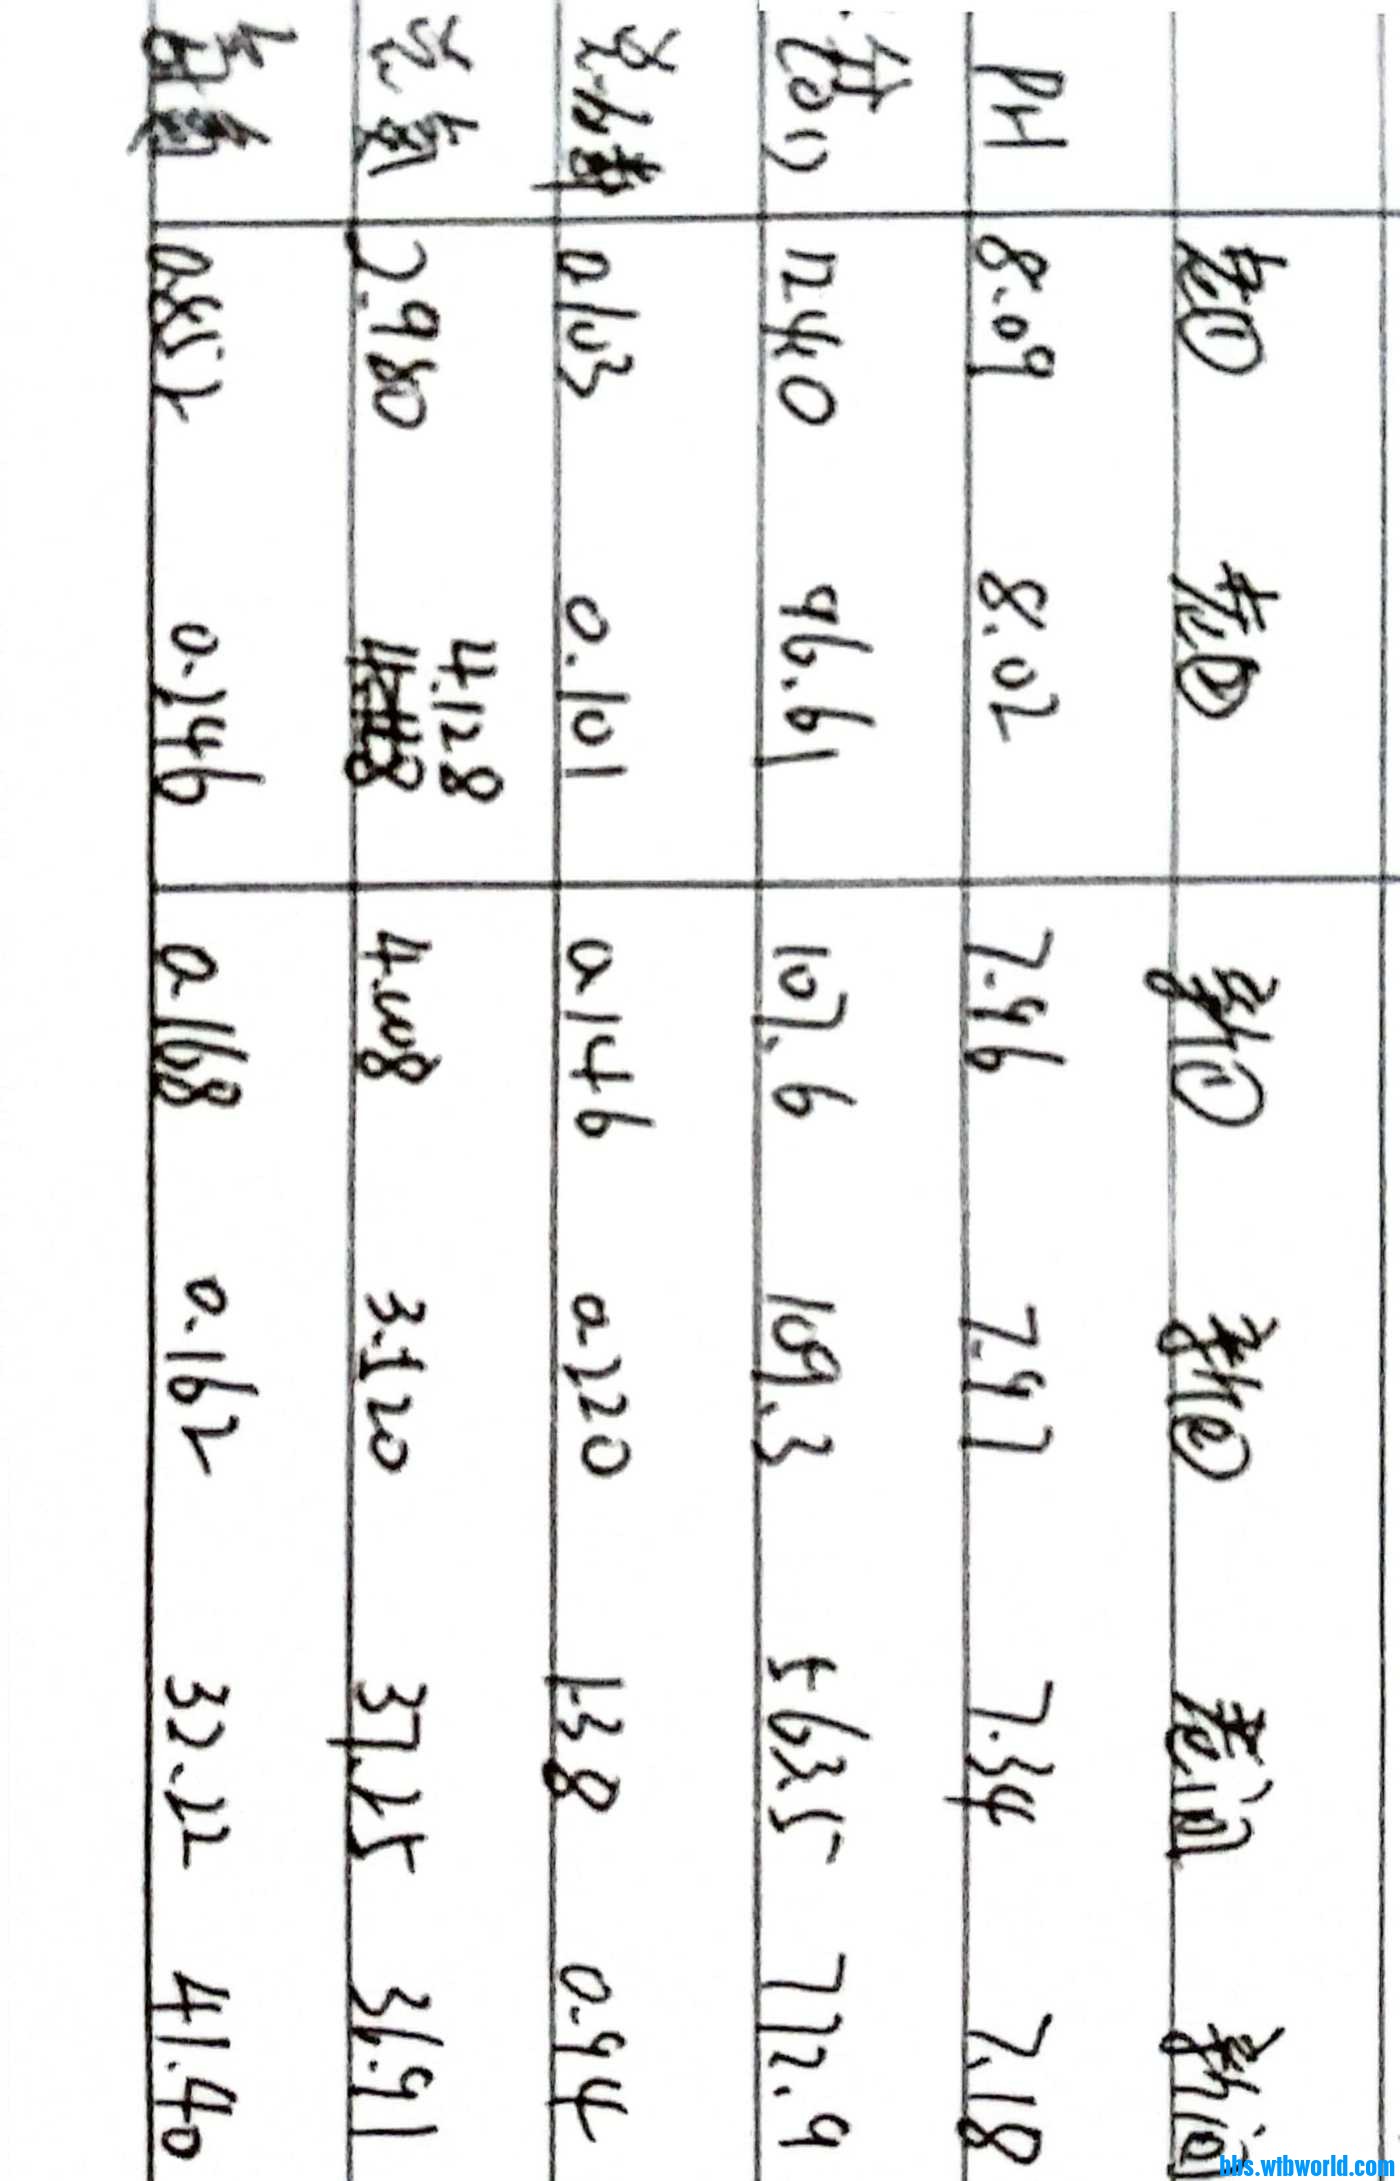 老① 老② 新① 新② 老间 新间
PH 8.09 8.02 7.96 7.97 7.34 7.18
12.40 96.61 107.6 109.3 5635 772.9
总磷 0.103 0.101 0.146 0.220 1.38 0.94
总氮 2.980 4.128 4.008 3.120 37.25 36.91
氨氮 0.852 0.246 0.168 0.162 32.22 41.40
bbs.wibworld.com